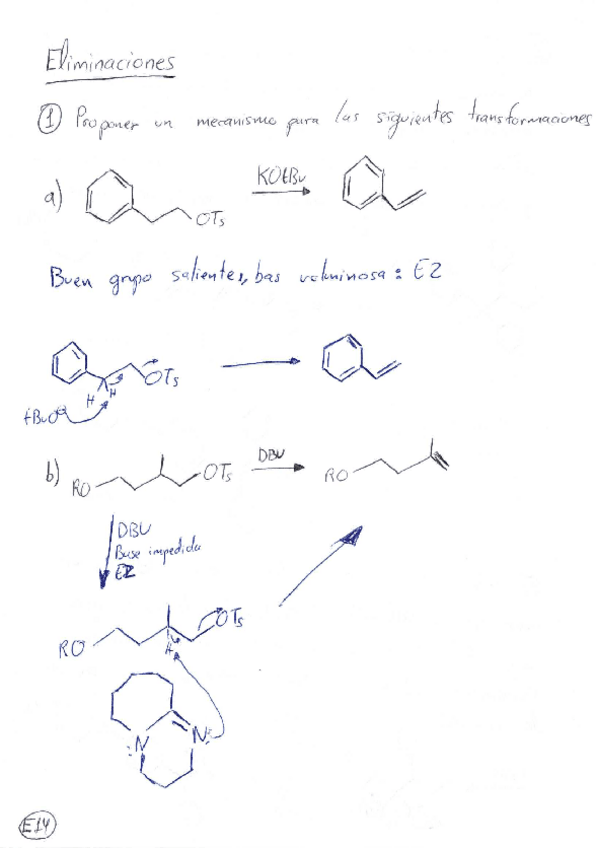 Eliminaciones
① Proponer un mecanismo para las siguientes transformaciones
a) OTs KOtBu
Buen grupo salientes, bas voluminosa : E2
OTs
H H
tBuO⊖
b) RO OTs DBU RO
DBU
Base impedida
E2
RO H OTs
:N N:
E14